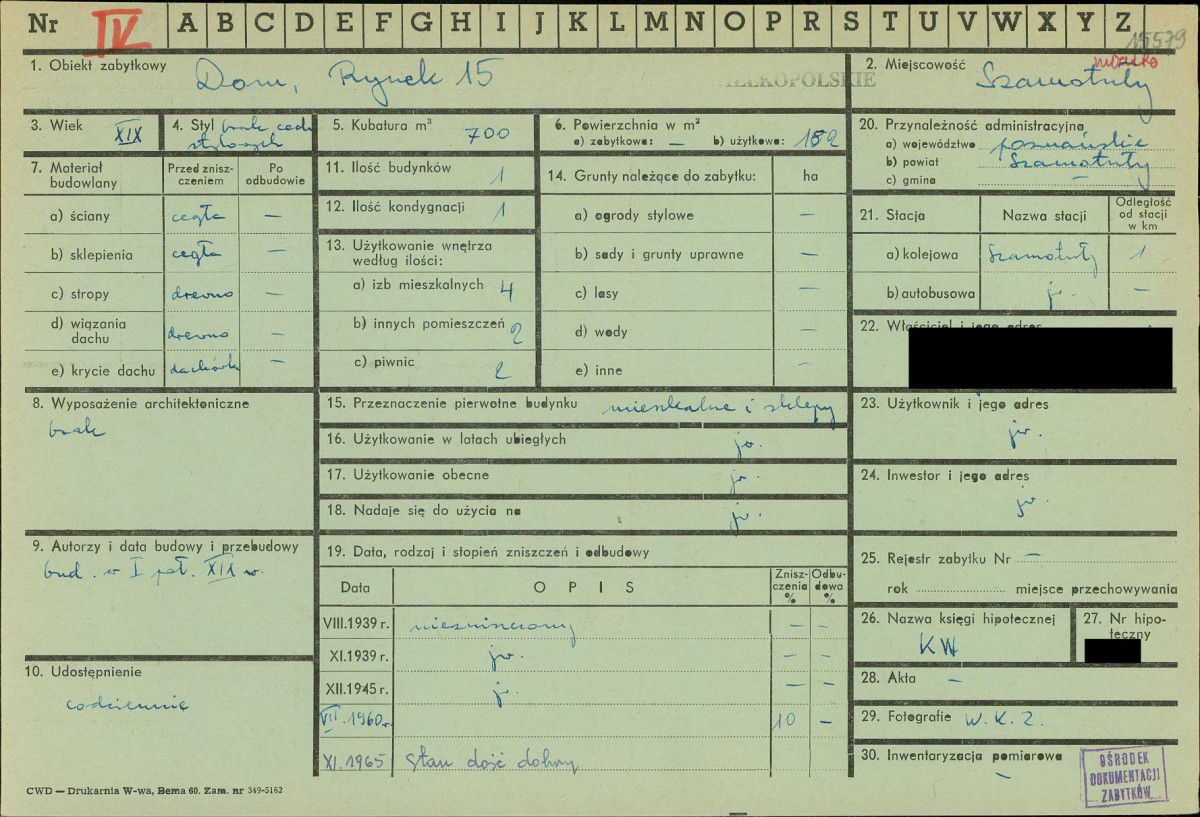 Nr IV A B C D E F G H I J K L M N O P R S T U V W X Y Z
15579
1. Obiekt zabytkowy Dom, Rynek 15
WIELKOPOLSKIE
2. Miejscowość miasto
Szamotuły
3. Wiek XIX
4. Styl brak cech
stylowych
5. Kubatura m³ 700
6. Powierzchnia w m²
a) zabytkowa: — b) użytkowa: 182
20. Przynależność administracyjna
a) województwo poznańskie
b) powiat Szamotuły
c) gmina —
7. Materiał budowlany
Przed znisz-
czeniem
Po
odbudowie
a) ściany cegła —
b) sklepienia cegła —
c) stropy drewno —
d) wiązania
dachu drewno —
e) krycie dachu dachówka —
11. Ilość budynków 1
12. Ilość kondygnacji 1
13. Użytkowanie wnętrza
według ilości:
a) izb mieszkalnych 4
b) innych pomieszczeń 2
c) piwnic 2
14. Grunty należące do zabytku: ha
a) ogrody stylowe —
b) sady i grunty uprawne —
c) lasy —
d) wody —
e) inne —
21. Stacja
Nazwa stacji
Odległość
od stacji
w km
a) kolejowa Szamotuły 1
b) autobusowa jw. —
22. Właściciel i jego adres
8. Wyposażenie architektoniczne
brak
15. Przeznaczenie pierwotne budynku mieszkalne i sklepy
16. Użytkowanie w latach ubiegłych jw.
17. Użytkowanie obecne jw.
18. Nadaje się do użycia na jw.
23. Użytkownik i jego adres
jw.
24. Inwestor i jego adres
jw.
9. Autorzy i data budowy i przebudowy
bud. w I poł. XIX w.
10. Udostępnienie
codziennie
19. Data, rodzaj i stopień zniszczeń i odbudowy
Data
OPIS
Znisz-
czenia
%
Odbu-
dowa
%
VIII.1939 r. niezniszczony — —
XI.1939 r. jw. — —
XII.1945 r. jw. — —
VII.1960 r. 10 —
XI.1965 Stan dość dobry
25. Rejestr zabytku Nr —
rok miejsce przechowywania
26. Nazwa księgi hipotecznej
KW
27. Nr hipo-
teczny
28. Akta —
29. Fotografie W.K.Z.
30. Inwentaryzacja pomiarowa
—
OŚRODEK
DOKUMENTACJI
ZABYTKÓW
CWD — Drukarnia W-wa, Bema 60. Zam. nr 349-5162